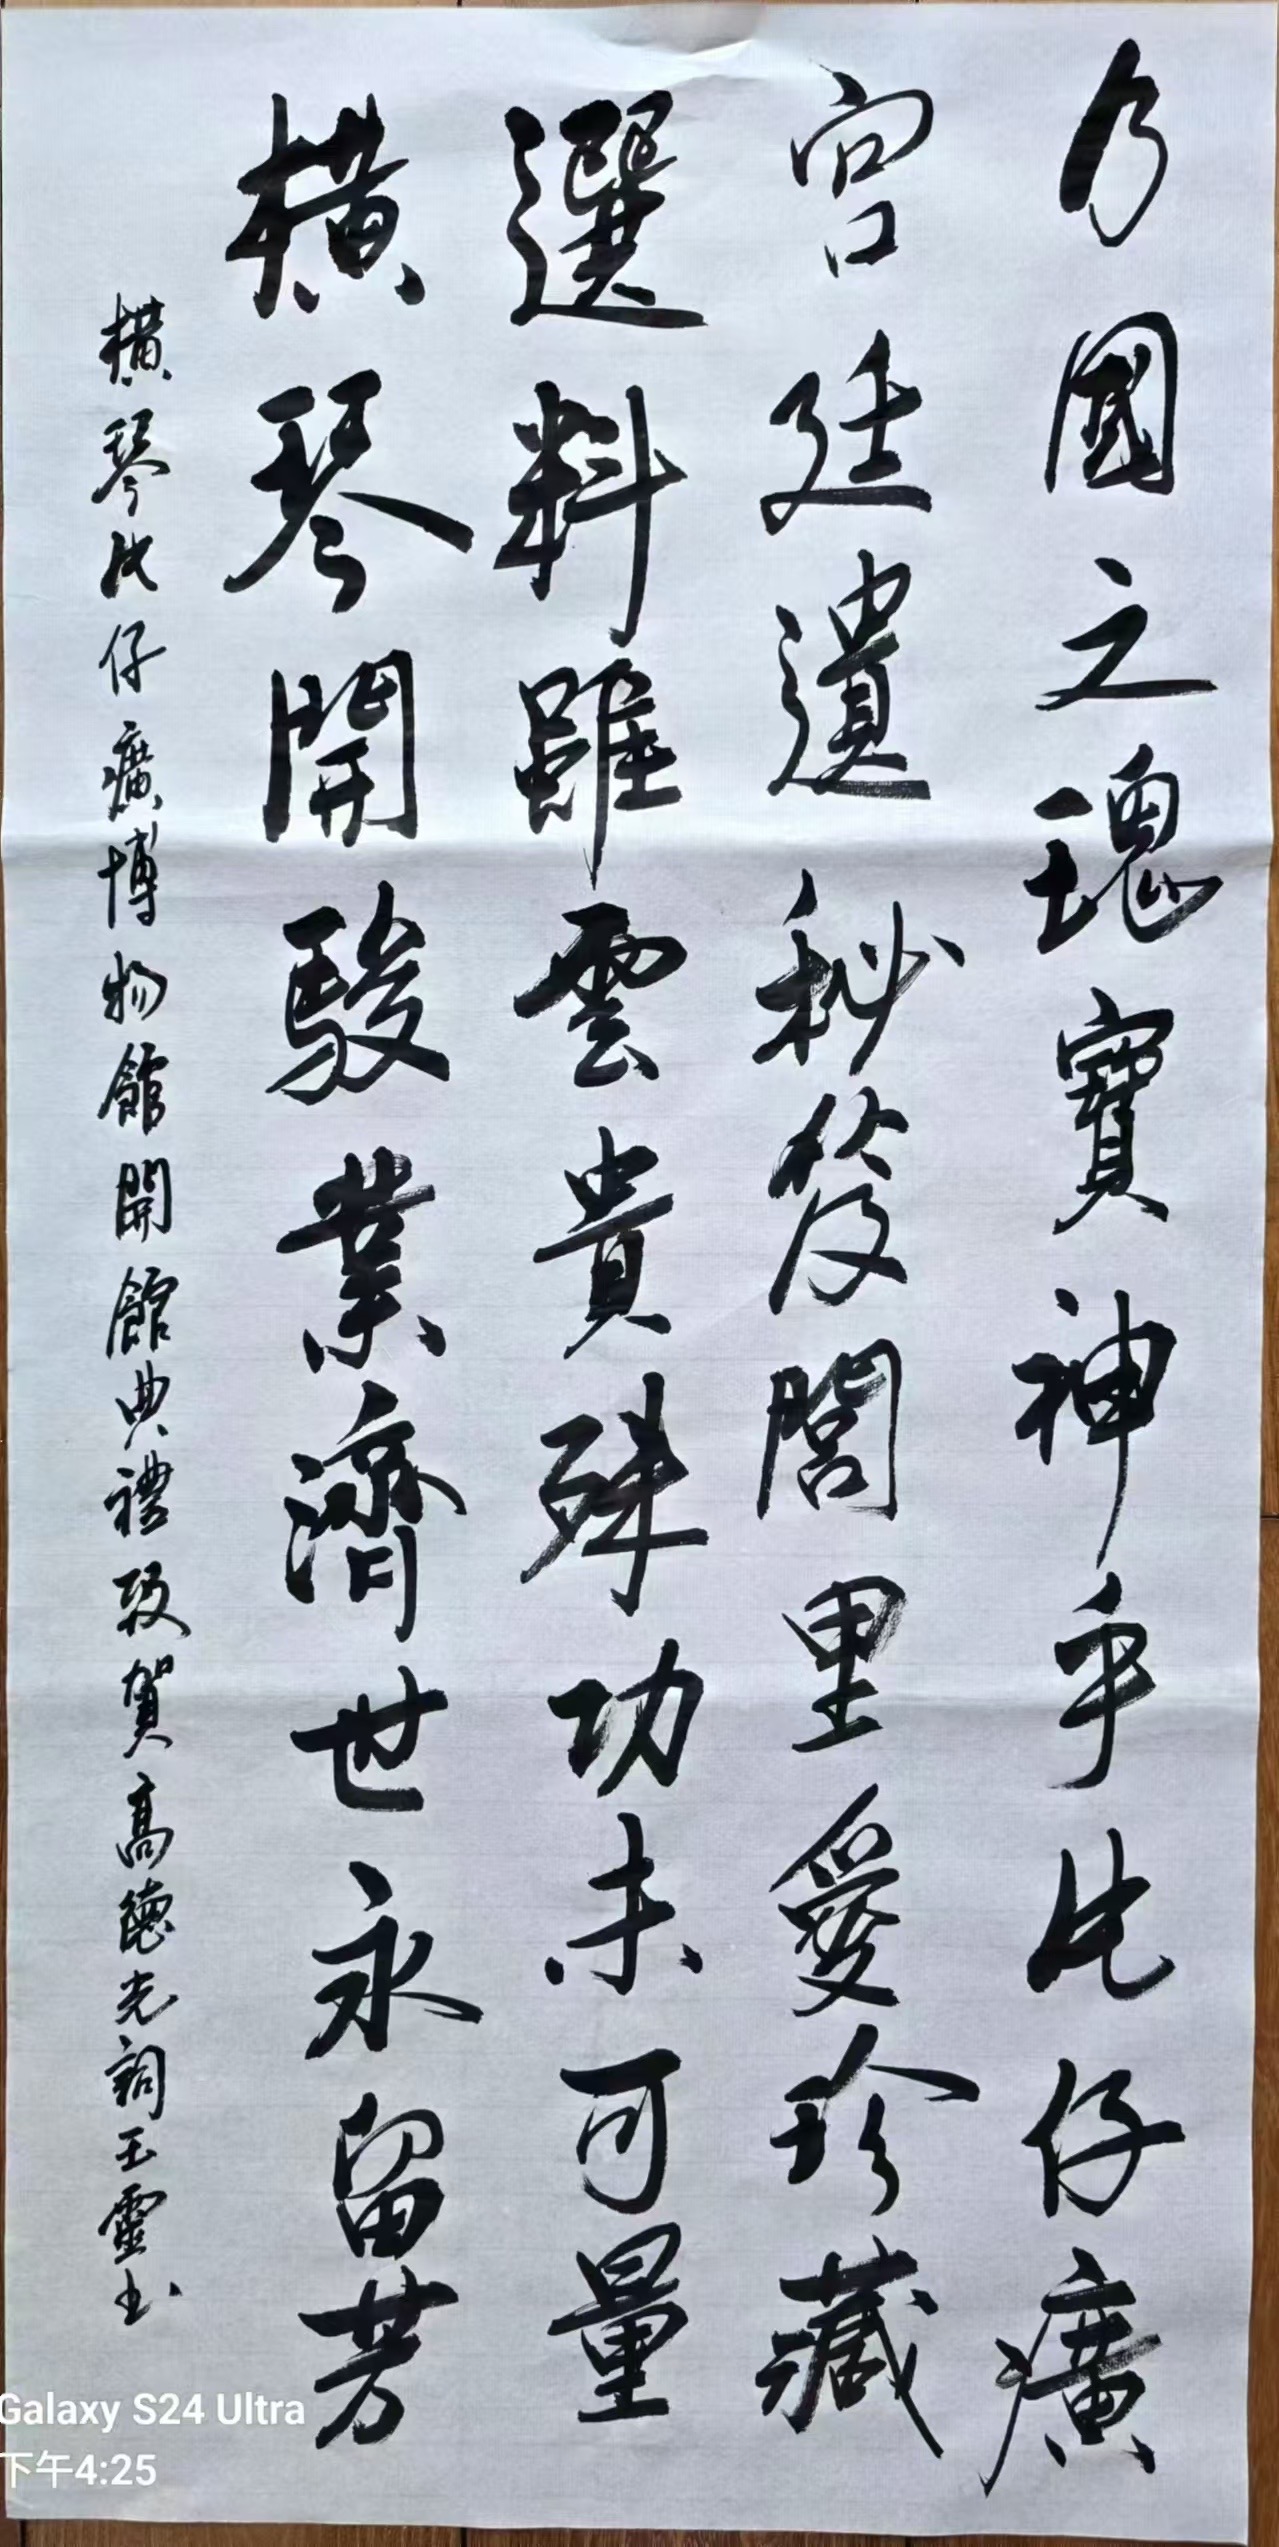 乃國之瑰寶神乎片仔癀
宮廷遺秘笈閭里愛珍藏
選料雖雲貴殊功未可量
橫琴開駿業濟世永留芳
橫琴片仔癀博物館開館典禮致賀高德光詞王靈書
Galaxy S24 Ultra
下午4:25